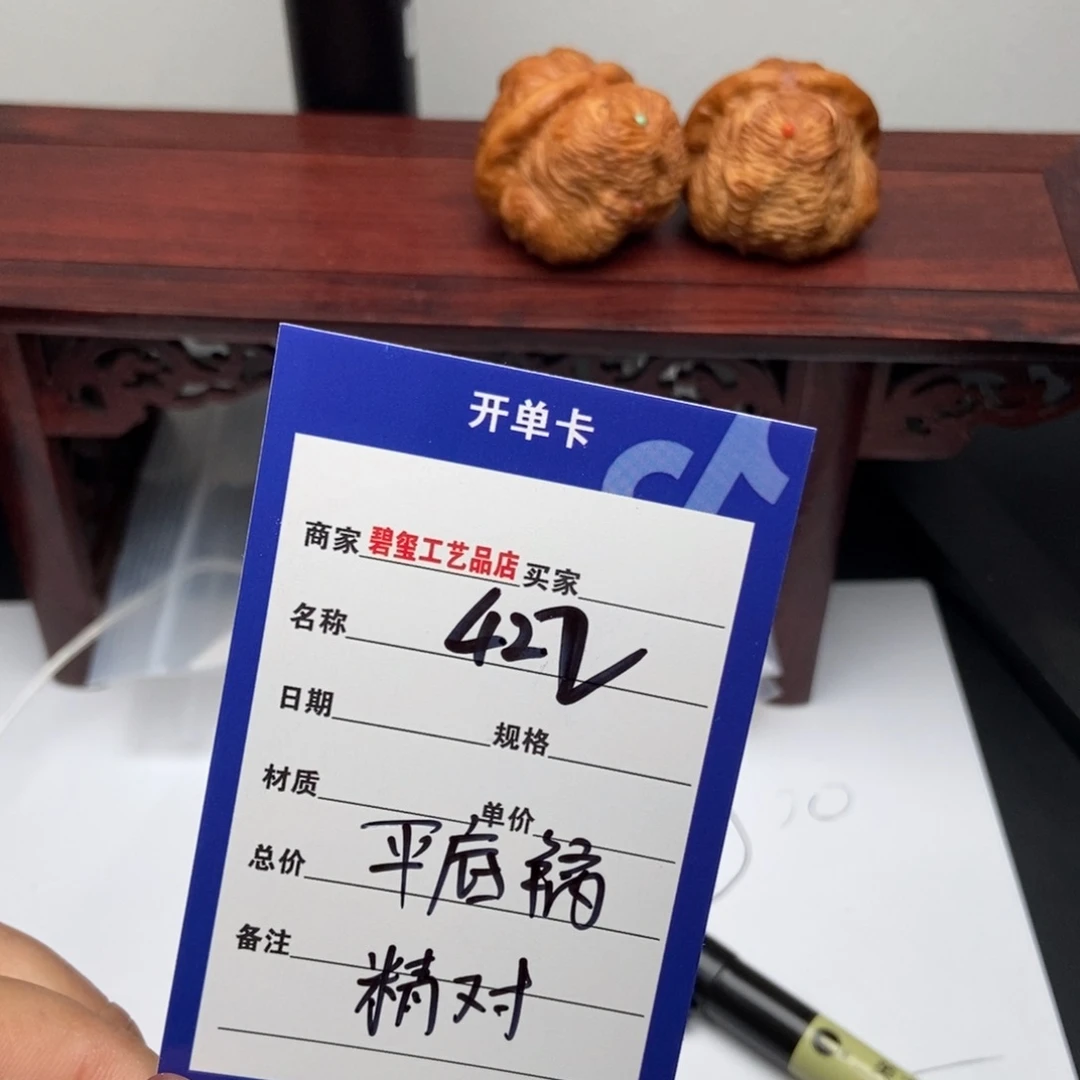 开单卡
商家 碧玺工艺品店 买家
名称 427
日期 规格
材质 单价
总价 平底
备注 精对